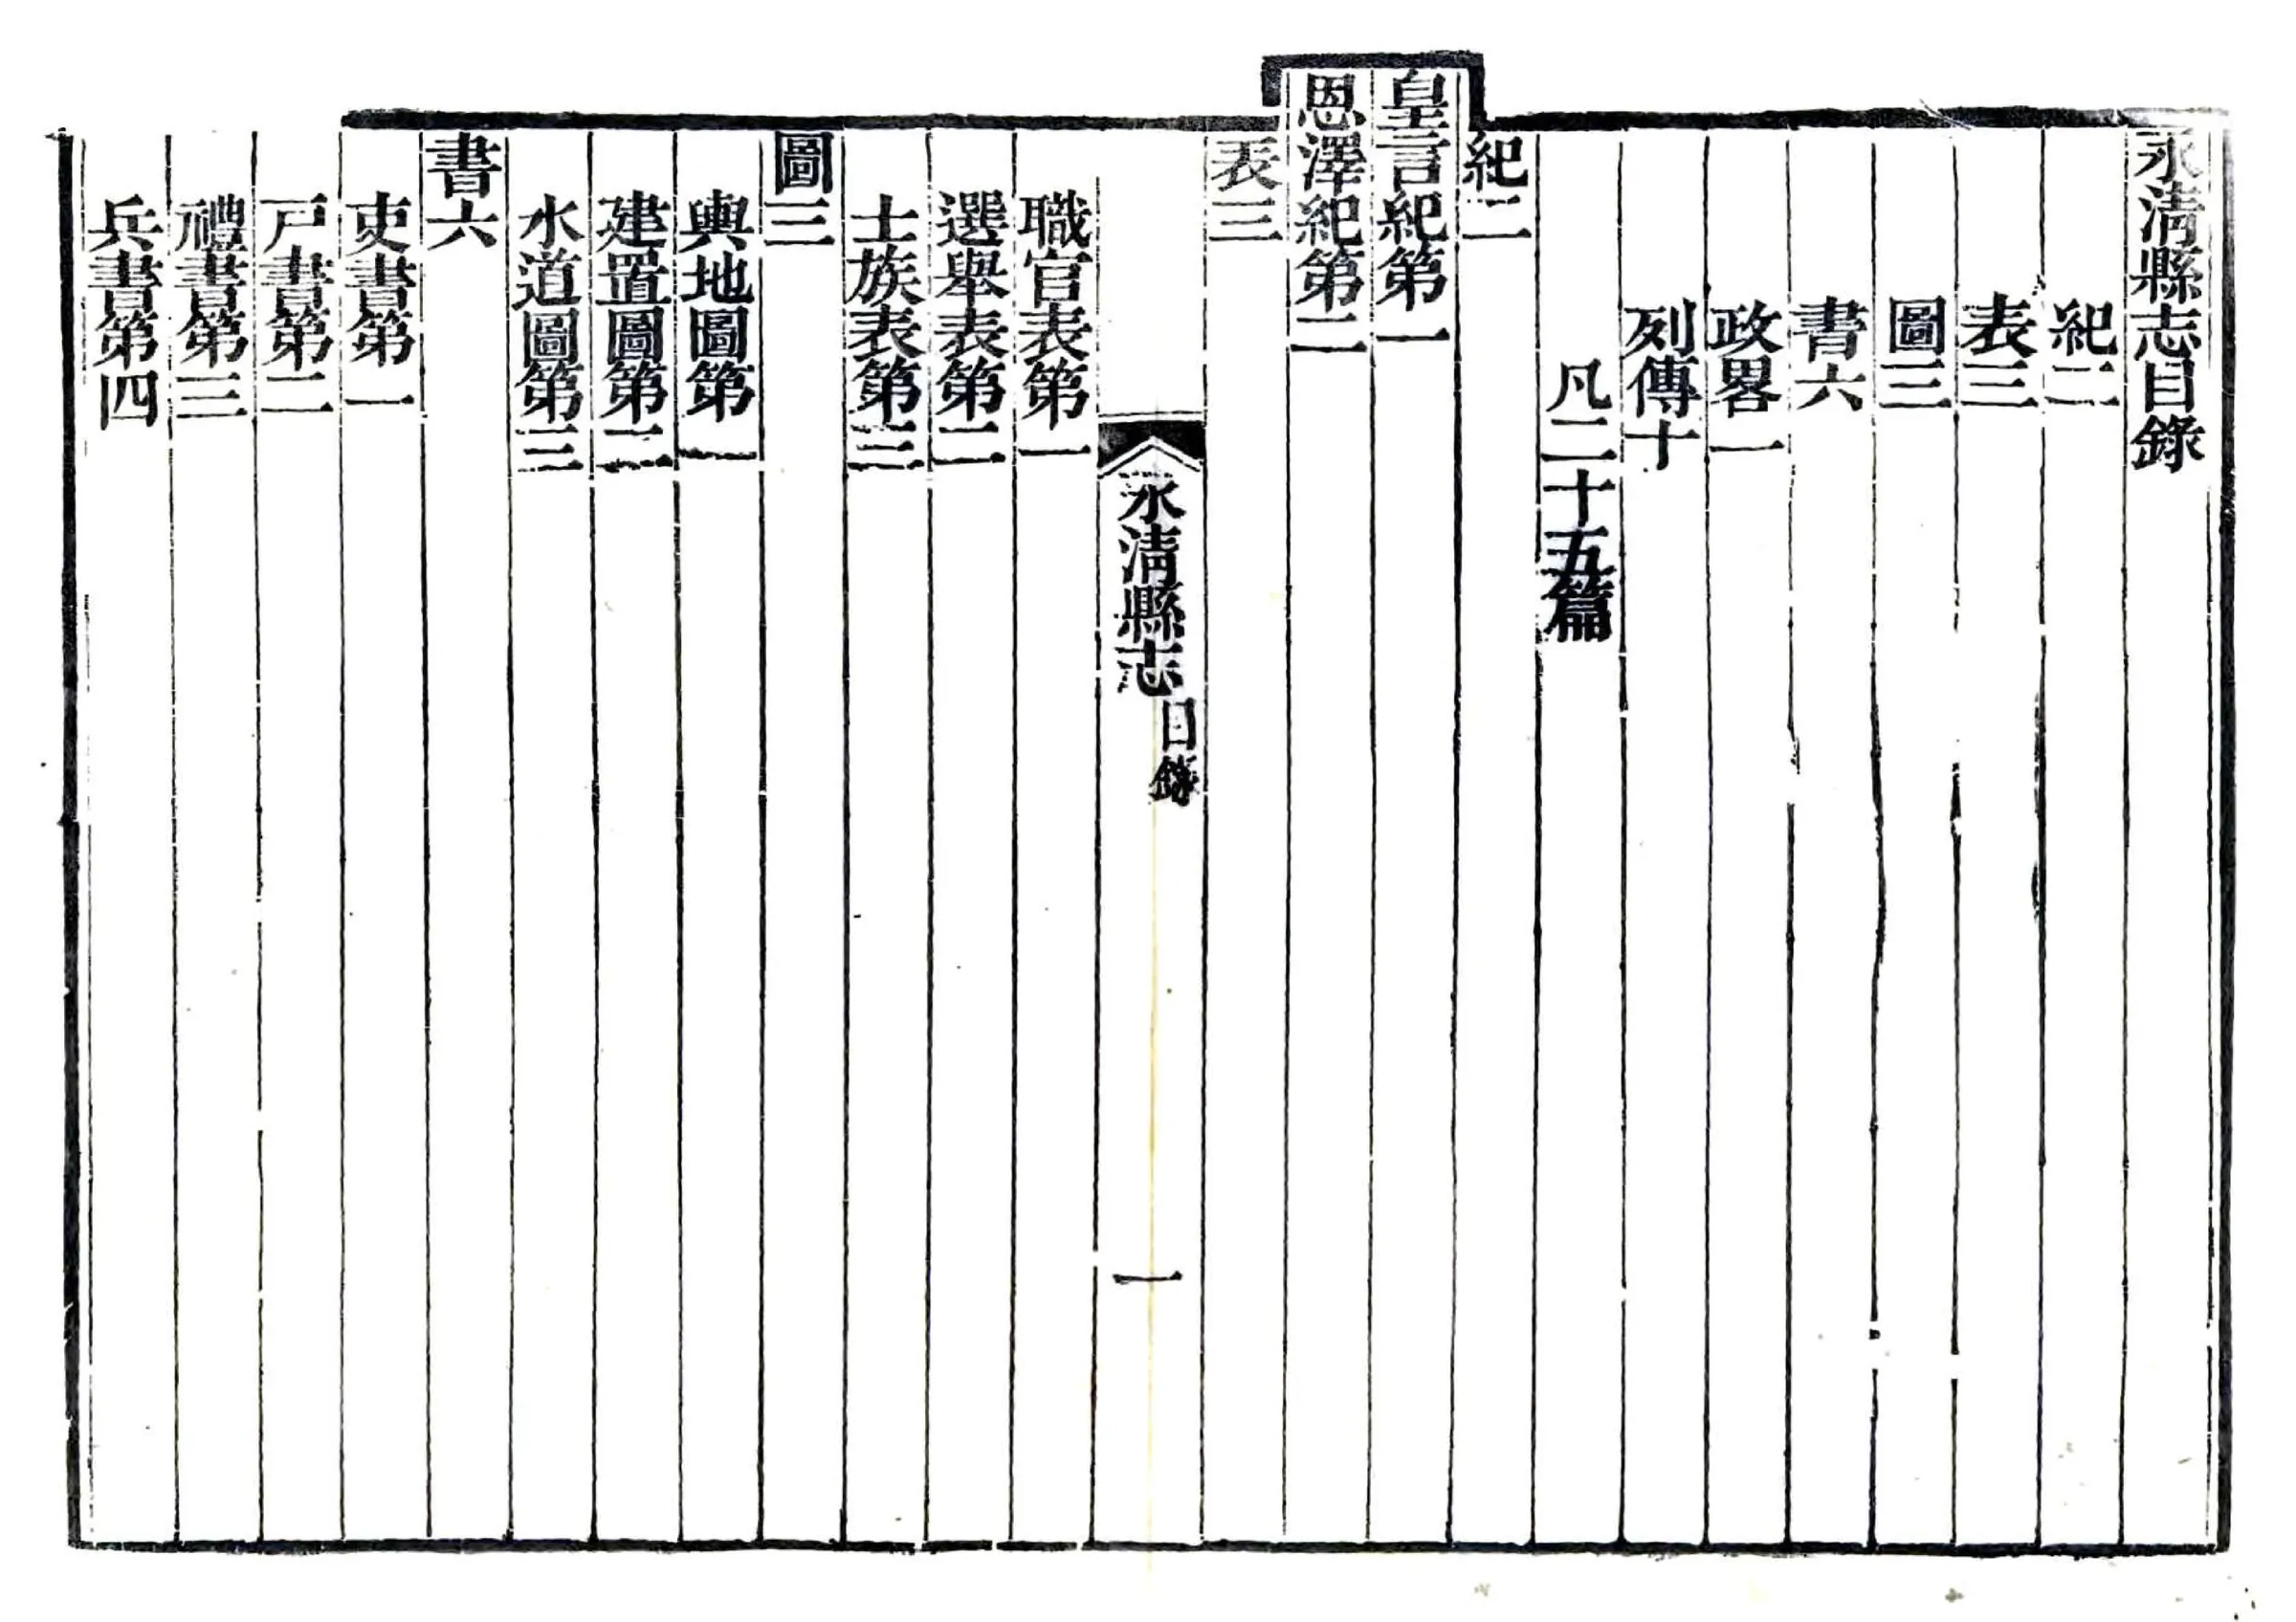 永清縣志目錄
紀二
表三
圖三
書六
政畧一
列傳十
凡二十五篇
紀二
皇言紀第一
恩澤紀第二
表三
永清縣志
目錄
一
職官表第一
選舉表第二
士族表第三
圖三
輿地圖第一
建置圖第二
水道圖第三
書六
吏書第一
戸書第二
禮書第三
兵書第四